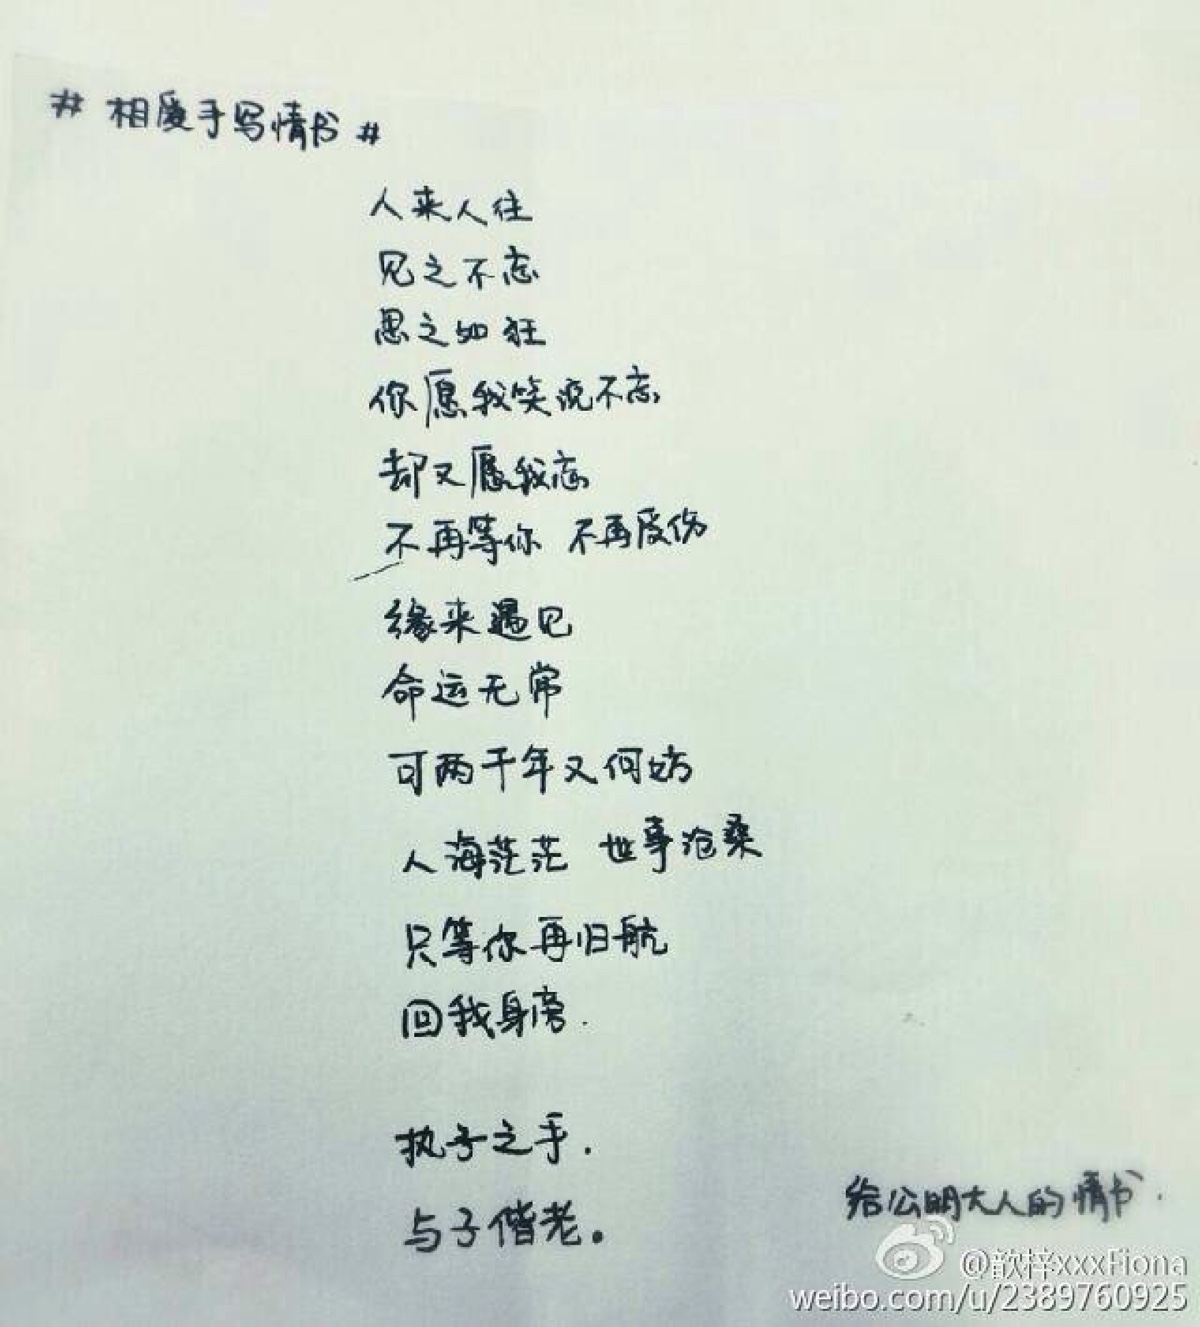 #相爱手写情书#
人来人往
见之不忘
思之如狂
你愿我笑说不忘
却又愿我忘
不再等你 不再受伤
缘来遇见
命运无常
可两千年又何妨
人海茫茫 世事沧桑
只等你再归航
回我身旁.
执子之手.
与子偕老。
给公明大人的情书.
@歆梓xxxFiona
weibo.com/u/2389760925